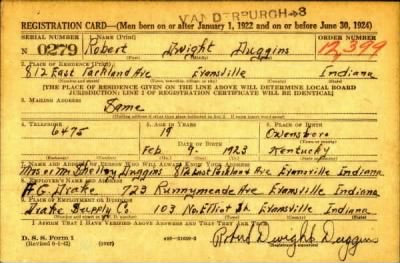 VANDERBURGH-3
REGISTRATION CARD—(Men born on or after January 1, 1922 and on or before June 30, 1924)
SERIAL NUMBER 1. NAME (Print) ORDER NUMBER
N 0279 Robert Dwight Duggins 12,399
2. PLACE OF RESIDENCE (Print)
812 East Parkland Ave Evansville Indiana
[THE PLACE OF RESIDENCE GIVEN ON THE LINE ABOVE WILL DETERMINE LOCAL BOARD
JURISDICTION; LINE 2 OF REGISTRATION CERTIFICATE WILL BE IDENTICAL]
3. MAILING ADDRESS
Same
4. TELEPHONE 5. AGE IN YEARS 6. PLACE OF BIRTH
6475 19 Owensboro
DATE OF BIRTH
Feb 9 1923 Kentucky
7. NAME AND ADDRESS OF PERSON WHO WILL ALWAYS KNOW YOUR ADDRESS
Mrs or Mr Shelley Duggins 812 East Parkland Ave Evansville Indiana
8. EMPLOYER'S NAME AND ADDRESS
A.G. Drake 723 Runnymende Ave Evansville Indiana
9. PLACE OF EMPLOYMENT OR BUSINESS
Drake Supply Co 103 No. Elliot St. Evansville Indiana
I AFFIRM THAT I HAVE VERIFIED ABOVE ANSWERS AND THAT THEY ARE TRUE.
D. S. S. Form 1
(Revised 6-1-42)
Robert Dwight Duggins